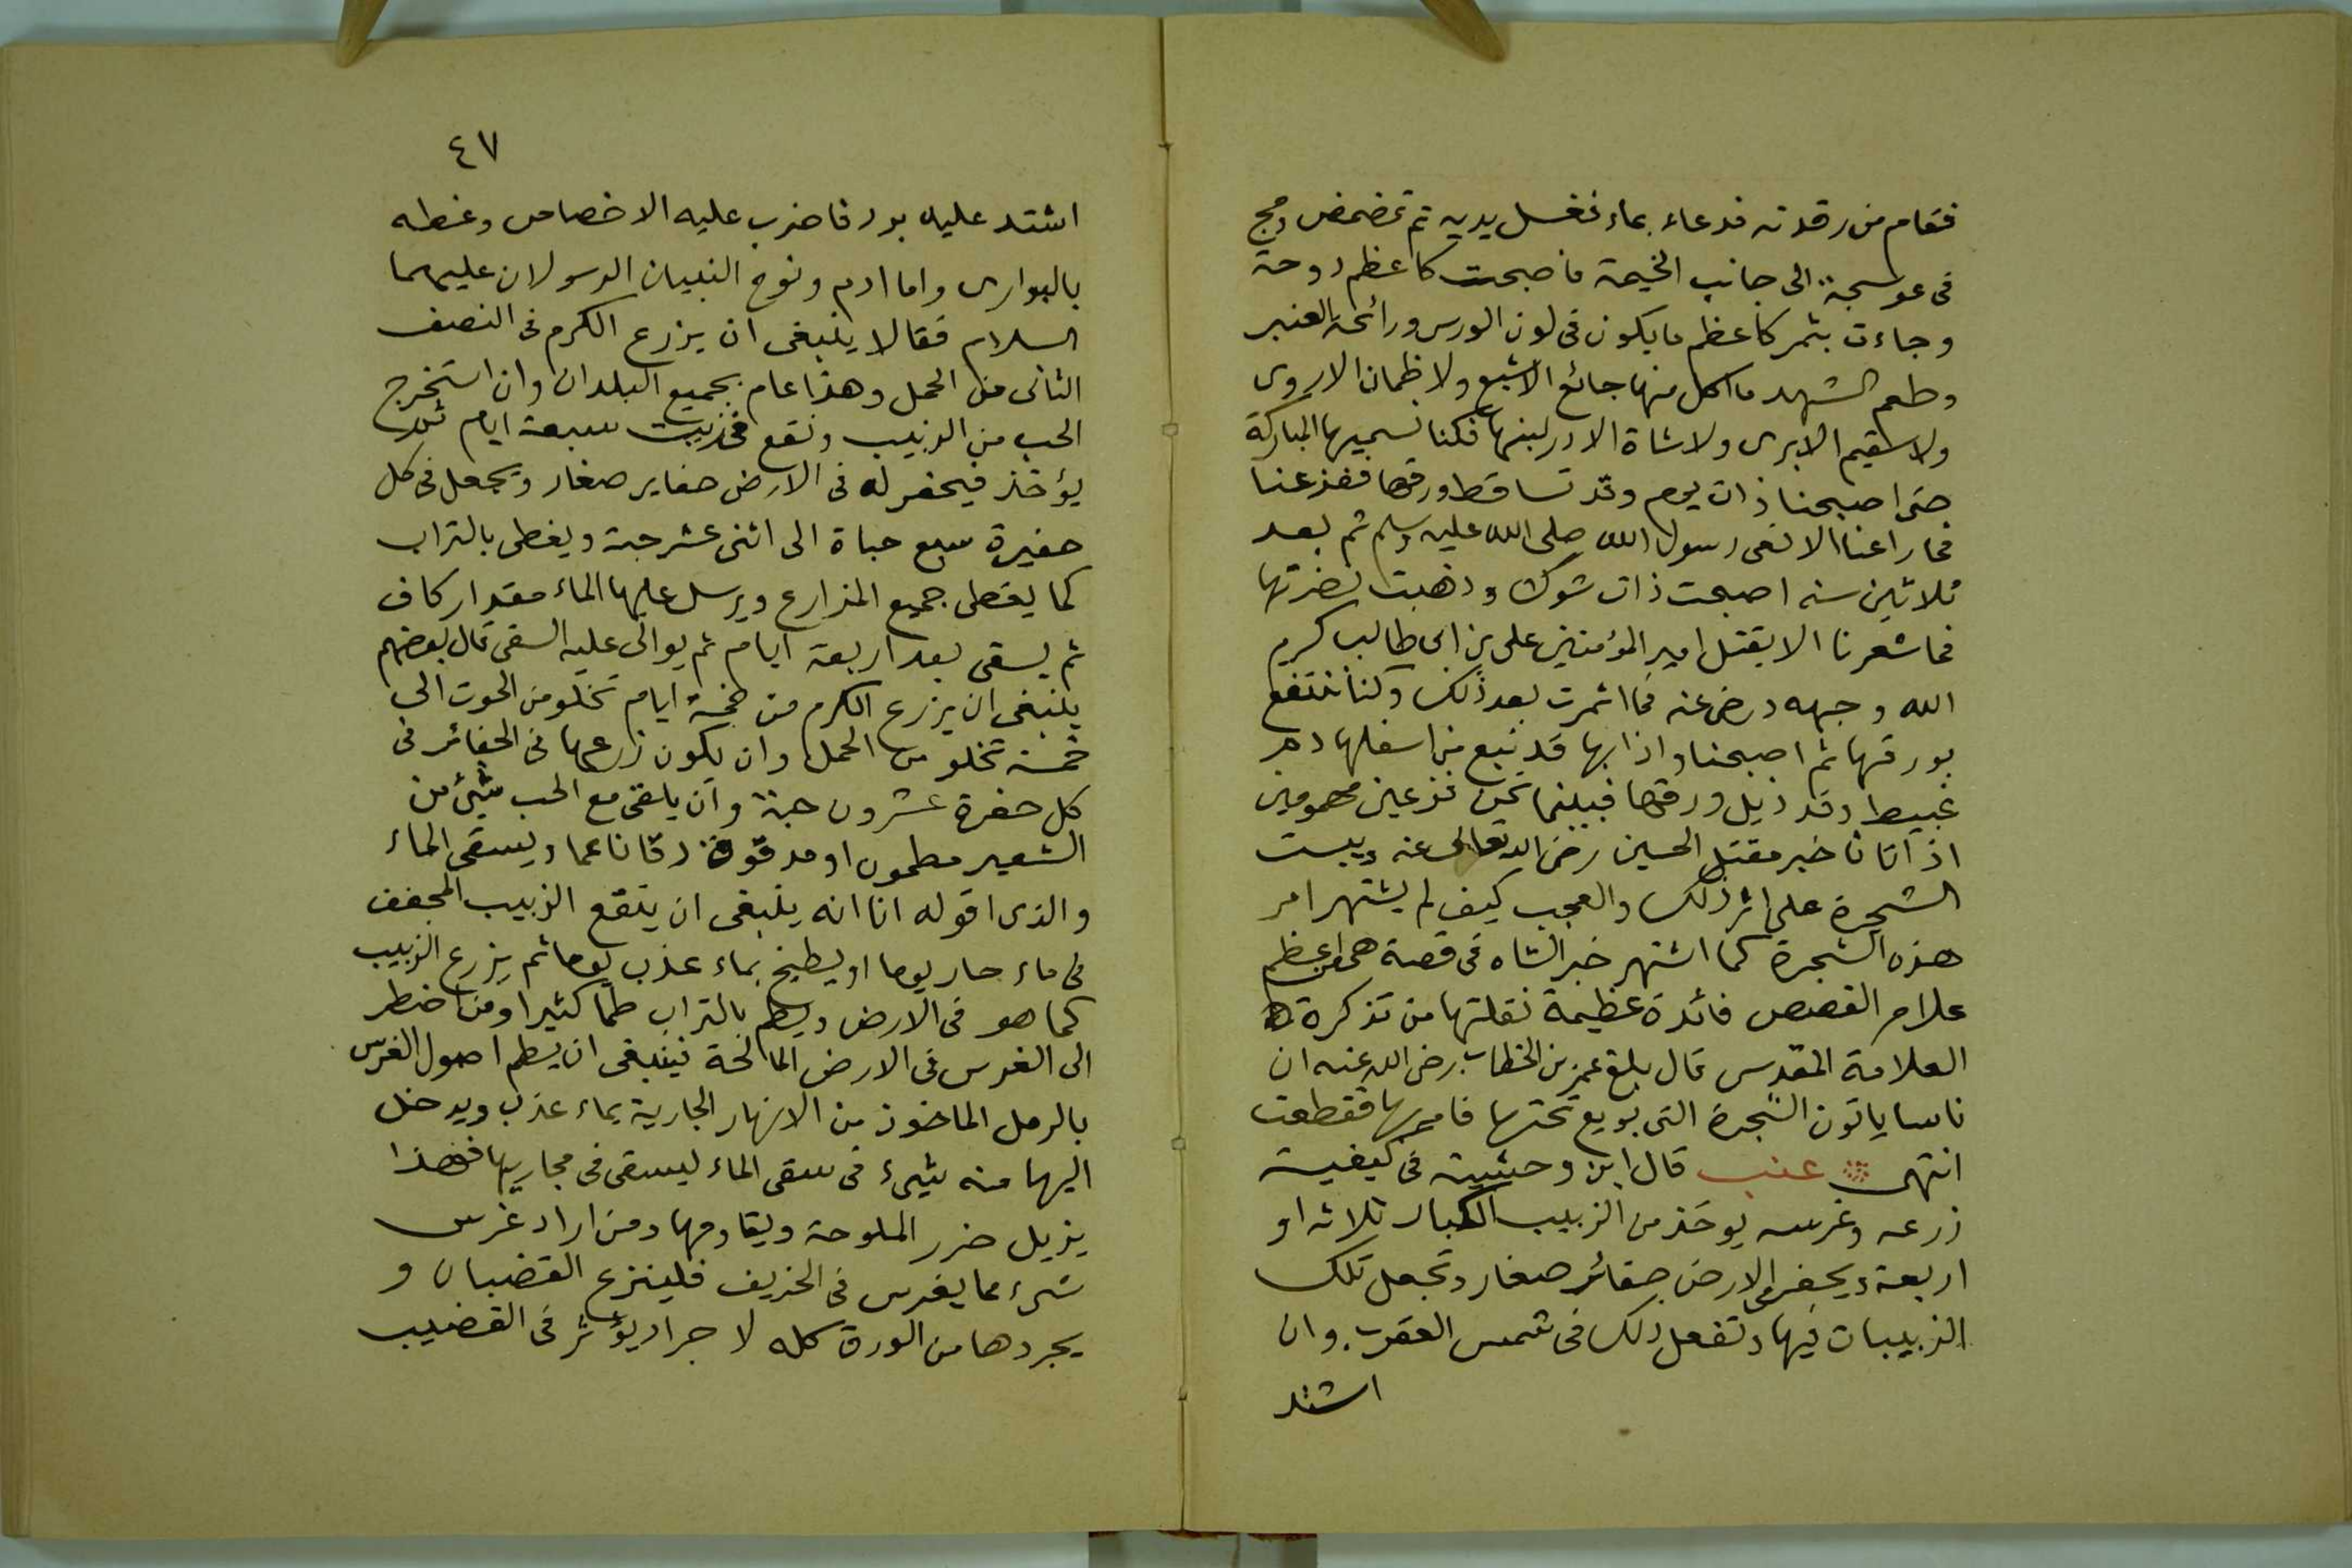 فقام من رقدته فدعاء بماء فغسل يديه ثم تمضمض ومج
فى عوسجة الى جانب الخيمة فاصبحت كاعظم دوحة
وجاءت بثمر كاعظم ما يكون فى لون الورس ورائحة العنبر
وطعم الشهد ما اكل منها جائع الا شبع ولا ظمان الا روى
ولا سقيم الا برى ولا شاة الا در لبنها فكنا نسميها المباركة
حتى اصبحنا ذات يوم وقد تساقط ورقها ففزعنا
فما راعنا الا نعى رسول الله صلى الله عليه وسلم ثم بعد
ثلاثين سنه اصبحت ذات شوك وذهبت نضرتها
فما شعرنا الا بقتل امير المؤمنين على بن ابى طالب كرم
الله وجهه ورضى عنه فما اثمرت بعد ذلك وكنا ننتفع
بورقها ثم اصبحنا واذا بها قد نبع من اسفلها دم
غبيط وقد ذبل ورقها فبينما نحن فزعين مهمومين
اذ اتانا خبر مقتل الحسين رضى الله تعالى عنه ويبست
الشجرة على اثر ذلك والعجب كيف لم يشتهر امر
هذه الشجرة كما اشتهر خبر الشاه فى قصة هى من اعظم
علام القصص فائدة عظيمة نقلتها من تذكرة
العلامة المقدس قال بلغ عمر بن الخطاب رضى الله عنه ان
ناسا ياتون الشجرة التى بويع تحتها فامر بها فقطعت
انتهى ۞ عنب قال ابن وحشية فى كيفية
زرعه وغرسه يوخذ من الزبيب الكبار ثلاثه او
اربعة ويحفر فى الارض حفائر صغار وتجعل تلك
الزبيبات فيها وتفعل ذلك فى شمس العقرب وان
اشتد
٤٧
اشتد عليه برد فاضرب عليه الاخصاص وغطه
بالبوارى واما ادم ونوح النبيان الرسولان عليهما
السلام فقالا ينبغى ان يزرع الكرم فى النصف
الثانى من الحمل وهذا عام بجميع البلدان وان استخرج
الحب من الزبيب ونقع فى زيت سبعة ايام ثم
يؤخذ فيحفر له فى الارض حفاير صغار ويجعل فى كل
حفيرة سبع حباة الى اثنى عشر حبة ويغطى بالتراب
كما يغطى جميع المزارع ويرسل عليها الماء مقدار كاف
ثم يسقى بعد اربعة ايام ثم يوالى عليه السقى قال بعضهم
ينبغى ان يزرع الكرم من خمسة ايام تخلو من الحوت الى
خمسة تخلو من الحمل وان يكون زرعها فى الحفائر فى
كل حفرة عشرون حبة وان يلقى مع الحب شئ من
الشعير مطحون او مدقوق دقا ناعما ويسقى الماء
والذى اقوله انا انه ينبغى ان ينقع الزبيب المجفف
فى ماء حار يوما او يطبخ بماء عذب يوما ثم يزرع الزبيب
كما هو فى الارض ويطم بالتراب طما كثيرا ومن اضطر
الى الغرس فى الارض المالحة فينبغى ان يطم اصول الغرس
بالرمل الماخوذ من الانهار الجارية بماء عذب ويدخل
اليها منه شىء فى سقى الماء ليسقى فى مجاريها فهذا
يزيل ضرر الملوحة ويقاومها ومن اراد غرس
شىء مما يغرس فى الخريف فلينزع القضبان و
يجردها من الورق كله لا جراد يؤثر فى القضيب